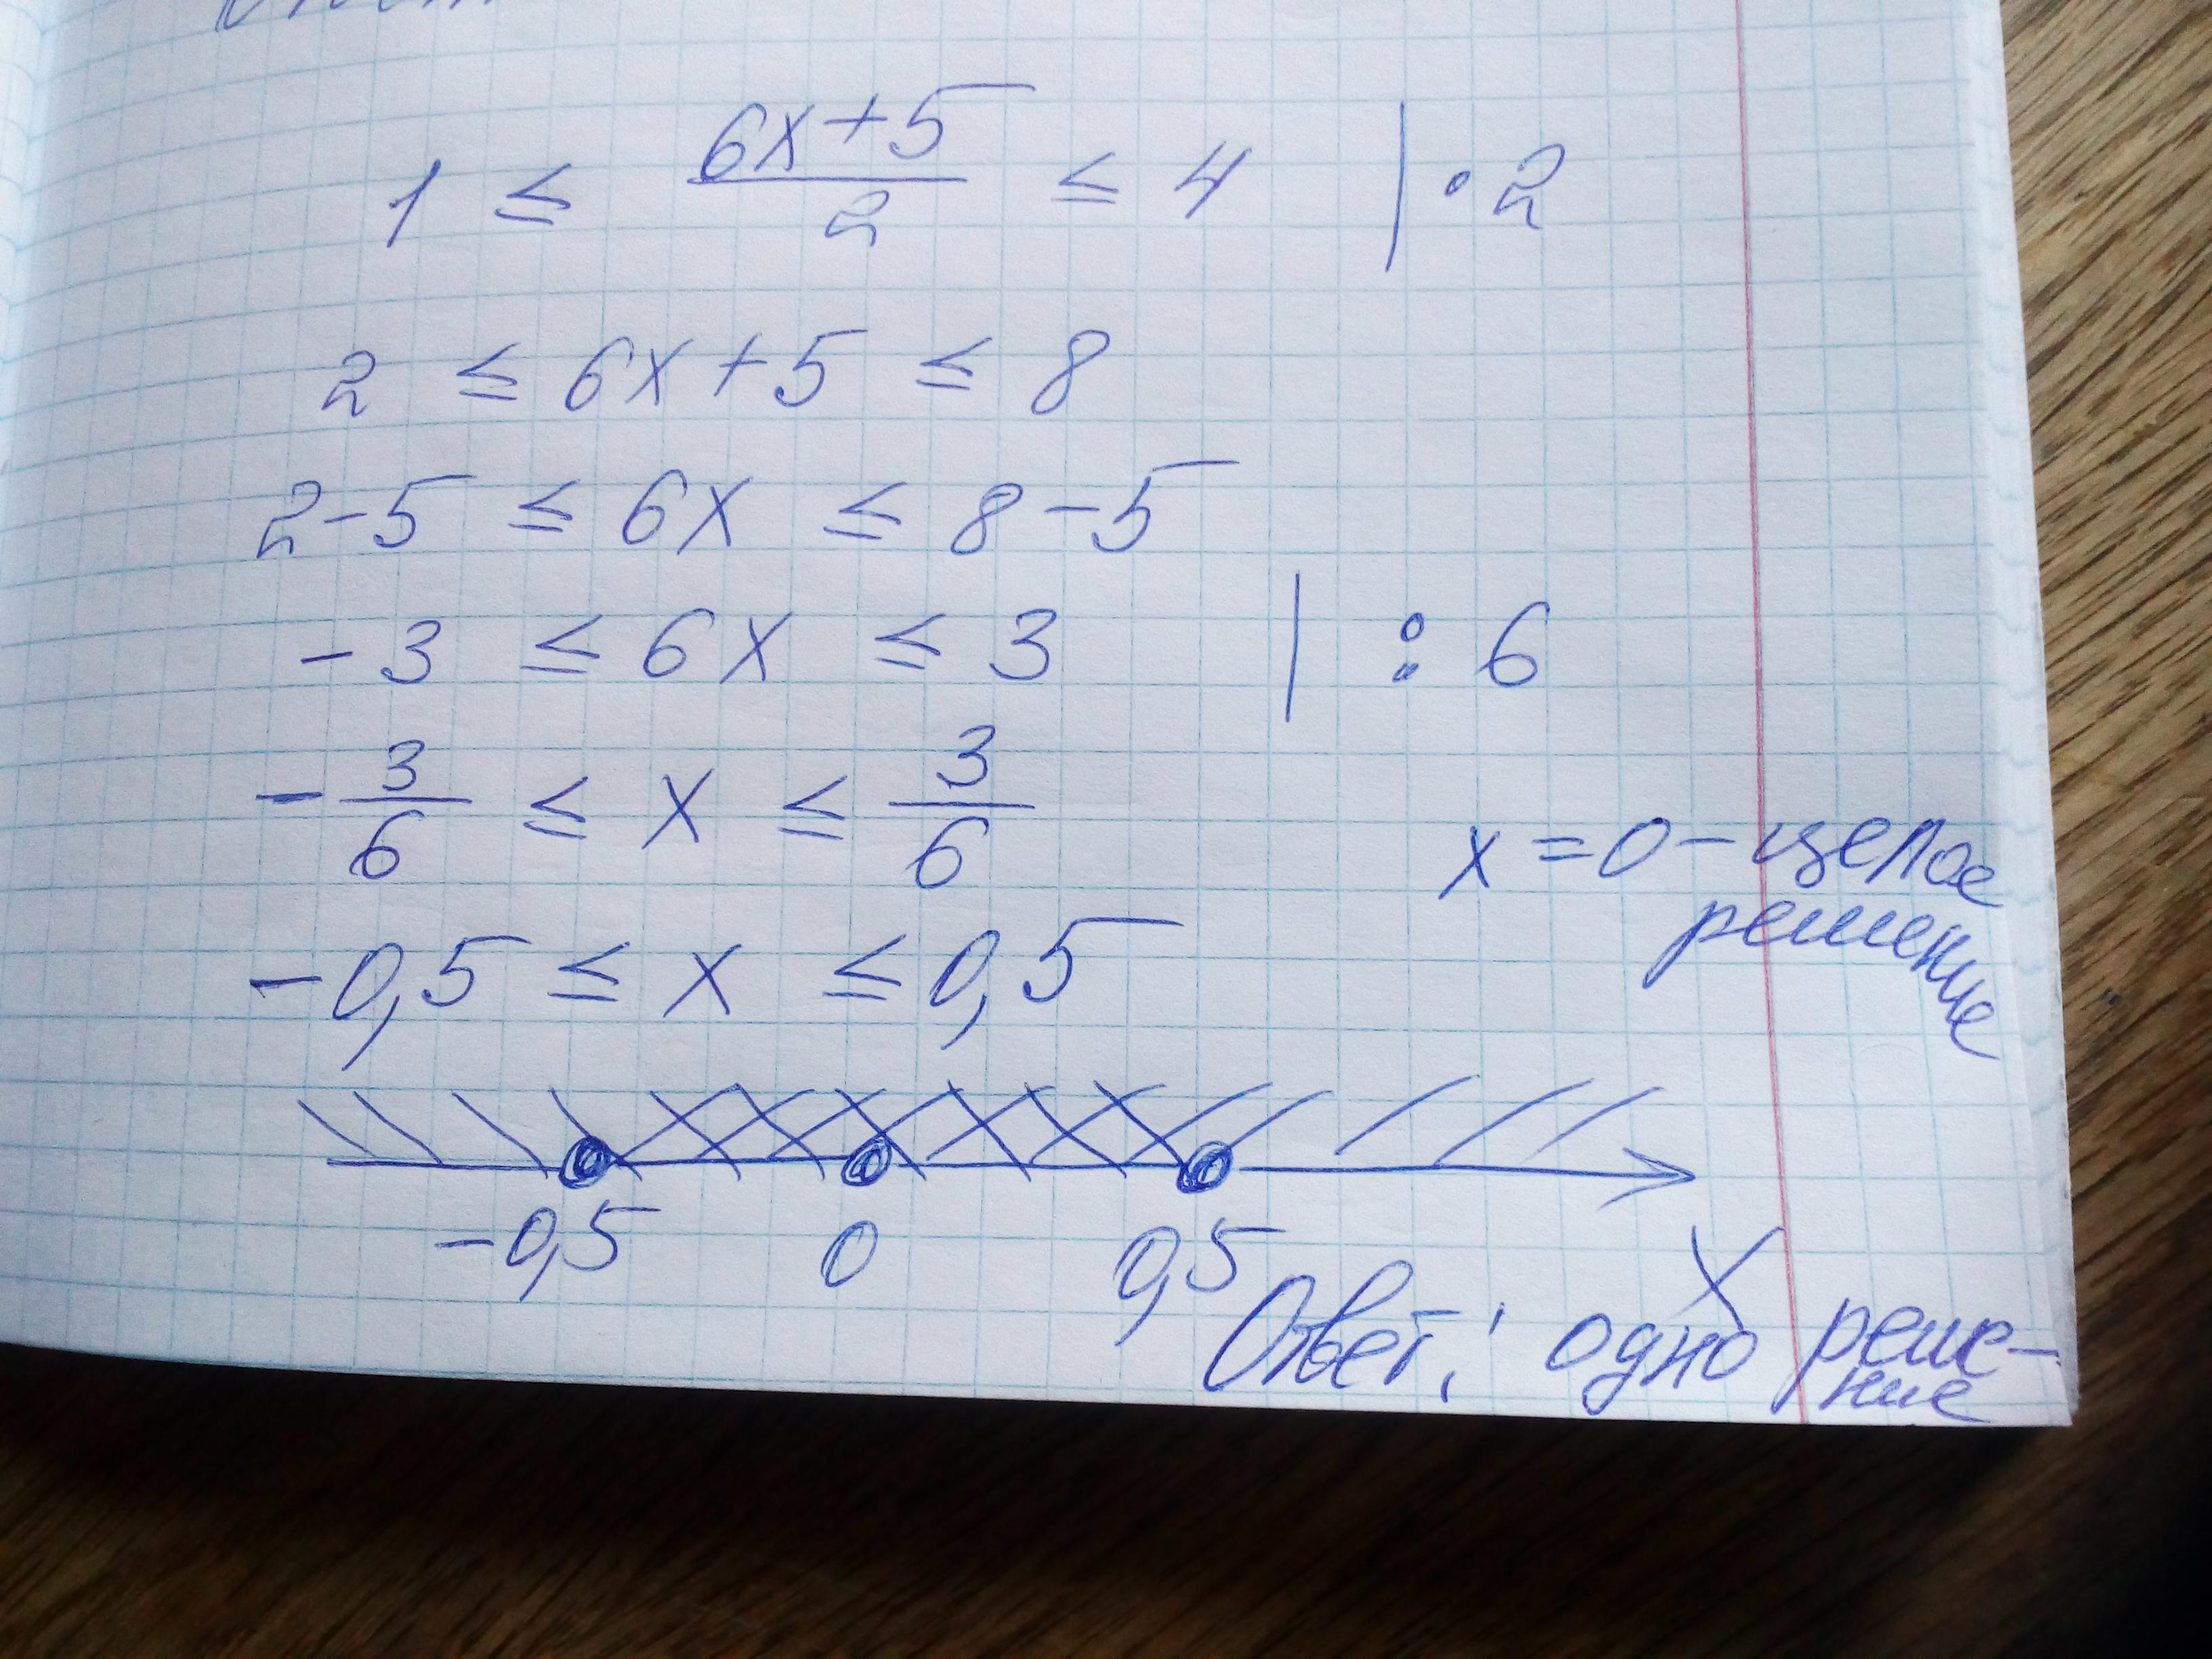 1 ≤ (6x+5)/2 ≤ 4 | · 2
2 ≤ 6x+5 ≤ 8
2-5 ≤ 6x ≤ 8-5
-3 ≤ 6x ≤ 3 | : 6
-3/6 ≤ x ≤ 3/6
x=0-целое
решение
-0,5 ≤ x ≤ 0,5
-0,5 0 0,5 x
Ответ: одно реше-
ние